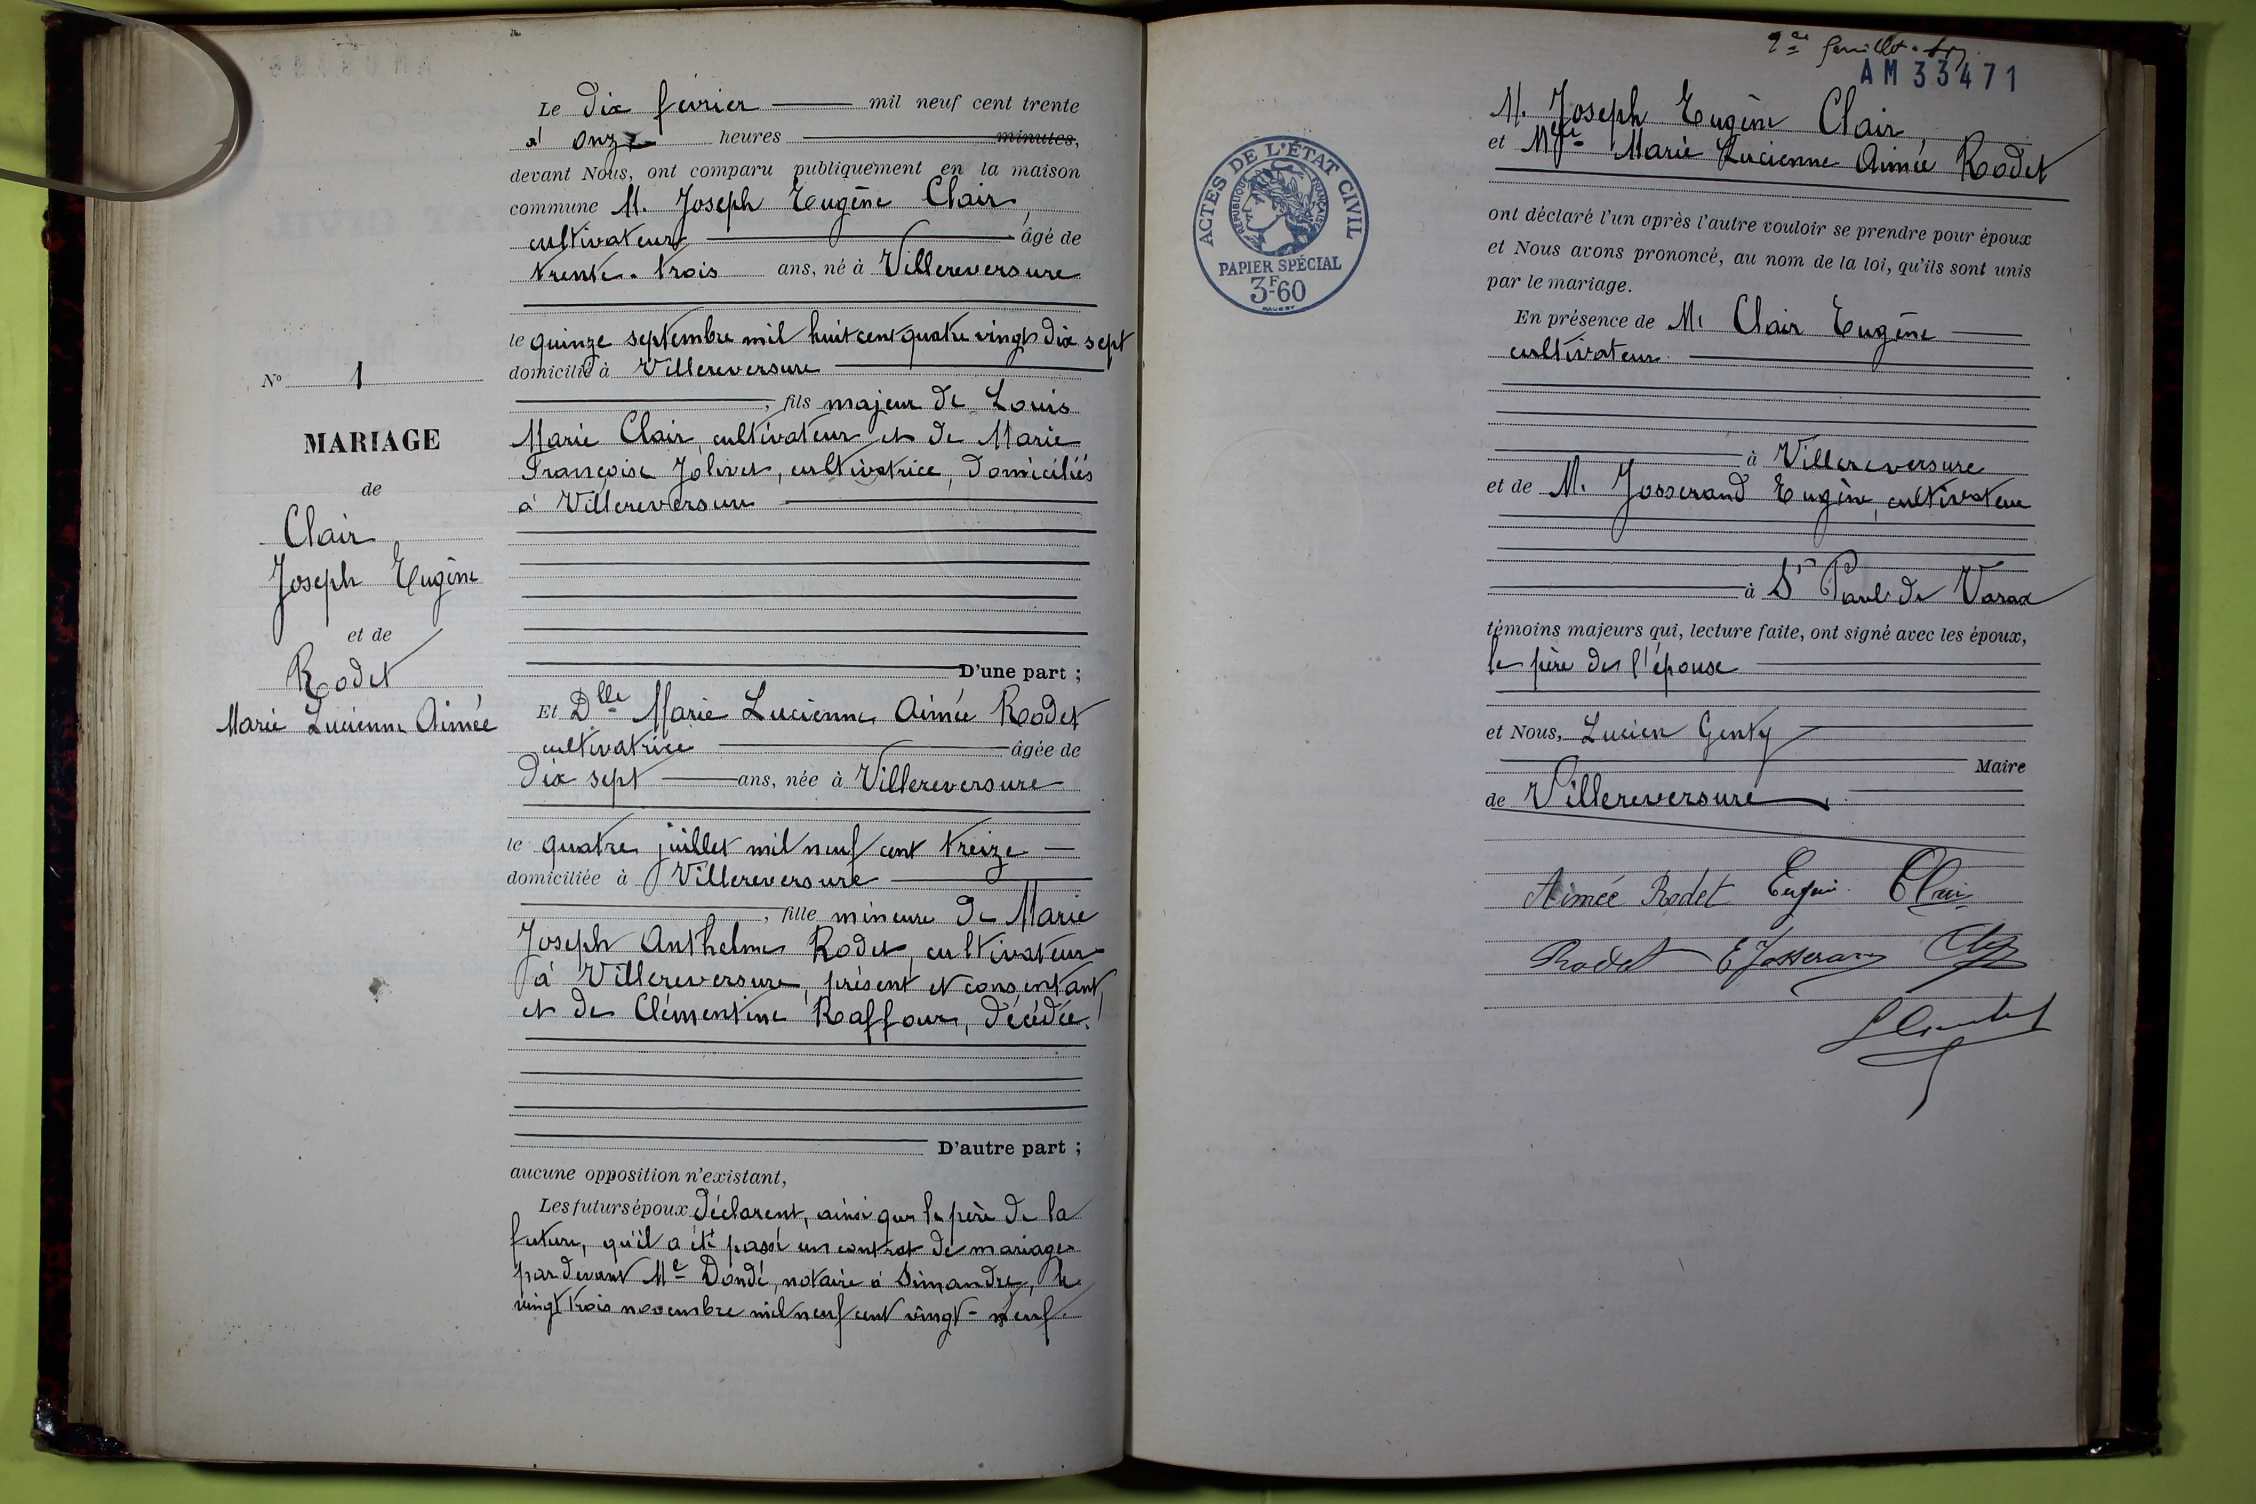 Le dix février mil neuf cent trente
à onze heures minutes,
devant Nous, ont comparu publiquement en la maison
commune M. Joseph Eugène Clair,
cultivateur âgé de
trente-trois ans, né à Villereversure
le quinze septembre mil huit cent quatre vingt dix sept
domicilié à Villereversure
, fils majeur de Louis
Marie Clair, cultivateur et de Marie
Françoise Jolivet, cultivatrice, domiciliés
à Villereversure
D'une part ;
Et Dlle Marie Lucienne Aimée Rodet
cultivatrice âgée de
dix sept ans, née à Villereversure
le quatre juillet mil neuf cent treize
domiciliée à Villereversure
, fille mineure de Marie
Joseph Anthelme Rodet, cultivateur
à Villereversure, présent et consentant,
et de Clémentine Raffour, décédée.
D'autre part ;
aucune opposition n'existant,
Les futurs époux déclarent, ainsi que le père de la
future, qu'il a été passé un contrat de mariage
par devant Me Dondé, notaire à Simandre, le
vingt trois novembre mil neuf cent vingt-neuf.
No 1
MARIAGE
de
Clair
Joseph Eugène
et de
Rodet
Marie Lucienne Aimée
2me feuillet
AM33471
ACTES DE L'ÉTAT CIVIL
RÉPUBLIQUE FRANÇAISE
PAPIER SPÉCIAL
3F60
M. Joseph Eugène Clair
et Mlle Marie Lucienne Aimée Rodet
ont déclaré l'un après l'autre vouloir se prendre pour époux
et Nous avons prononcé, au nom de la loi, qu'ils sont unis
par le mariage.
En présence de M. Clair Eugène
cultivateur
à Villereversure
et de M. Josserand Eugène, cultivateur
à St Paul de Varax
témoins majeurs qui, lecture faite, ont signé avec les époux,
le père de l'épouse
et Nous, Lucien Genty
Maire
de Villereversure.
Aimée Rodet Eugène Clair
Rodet E Josserand